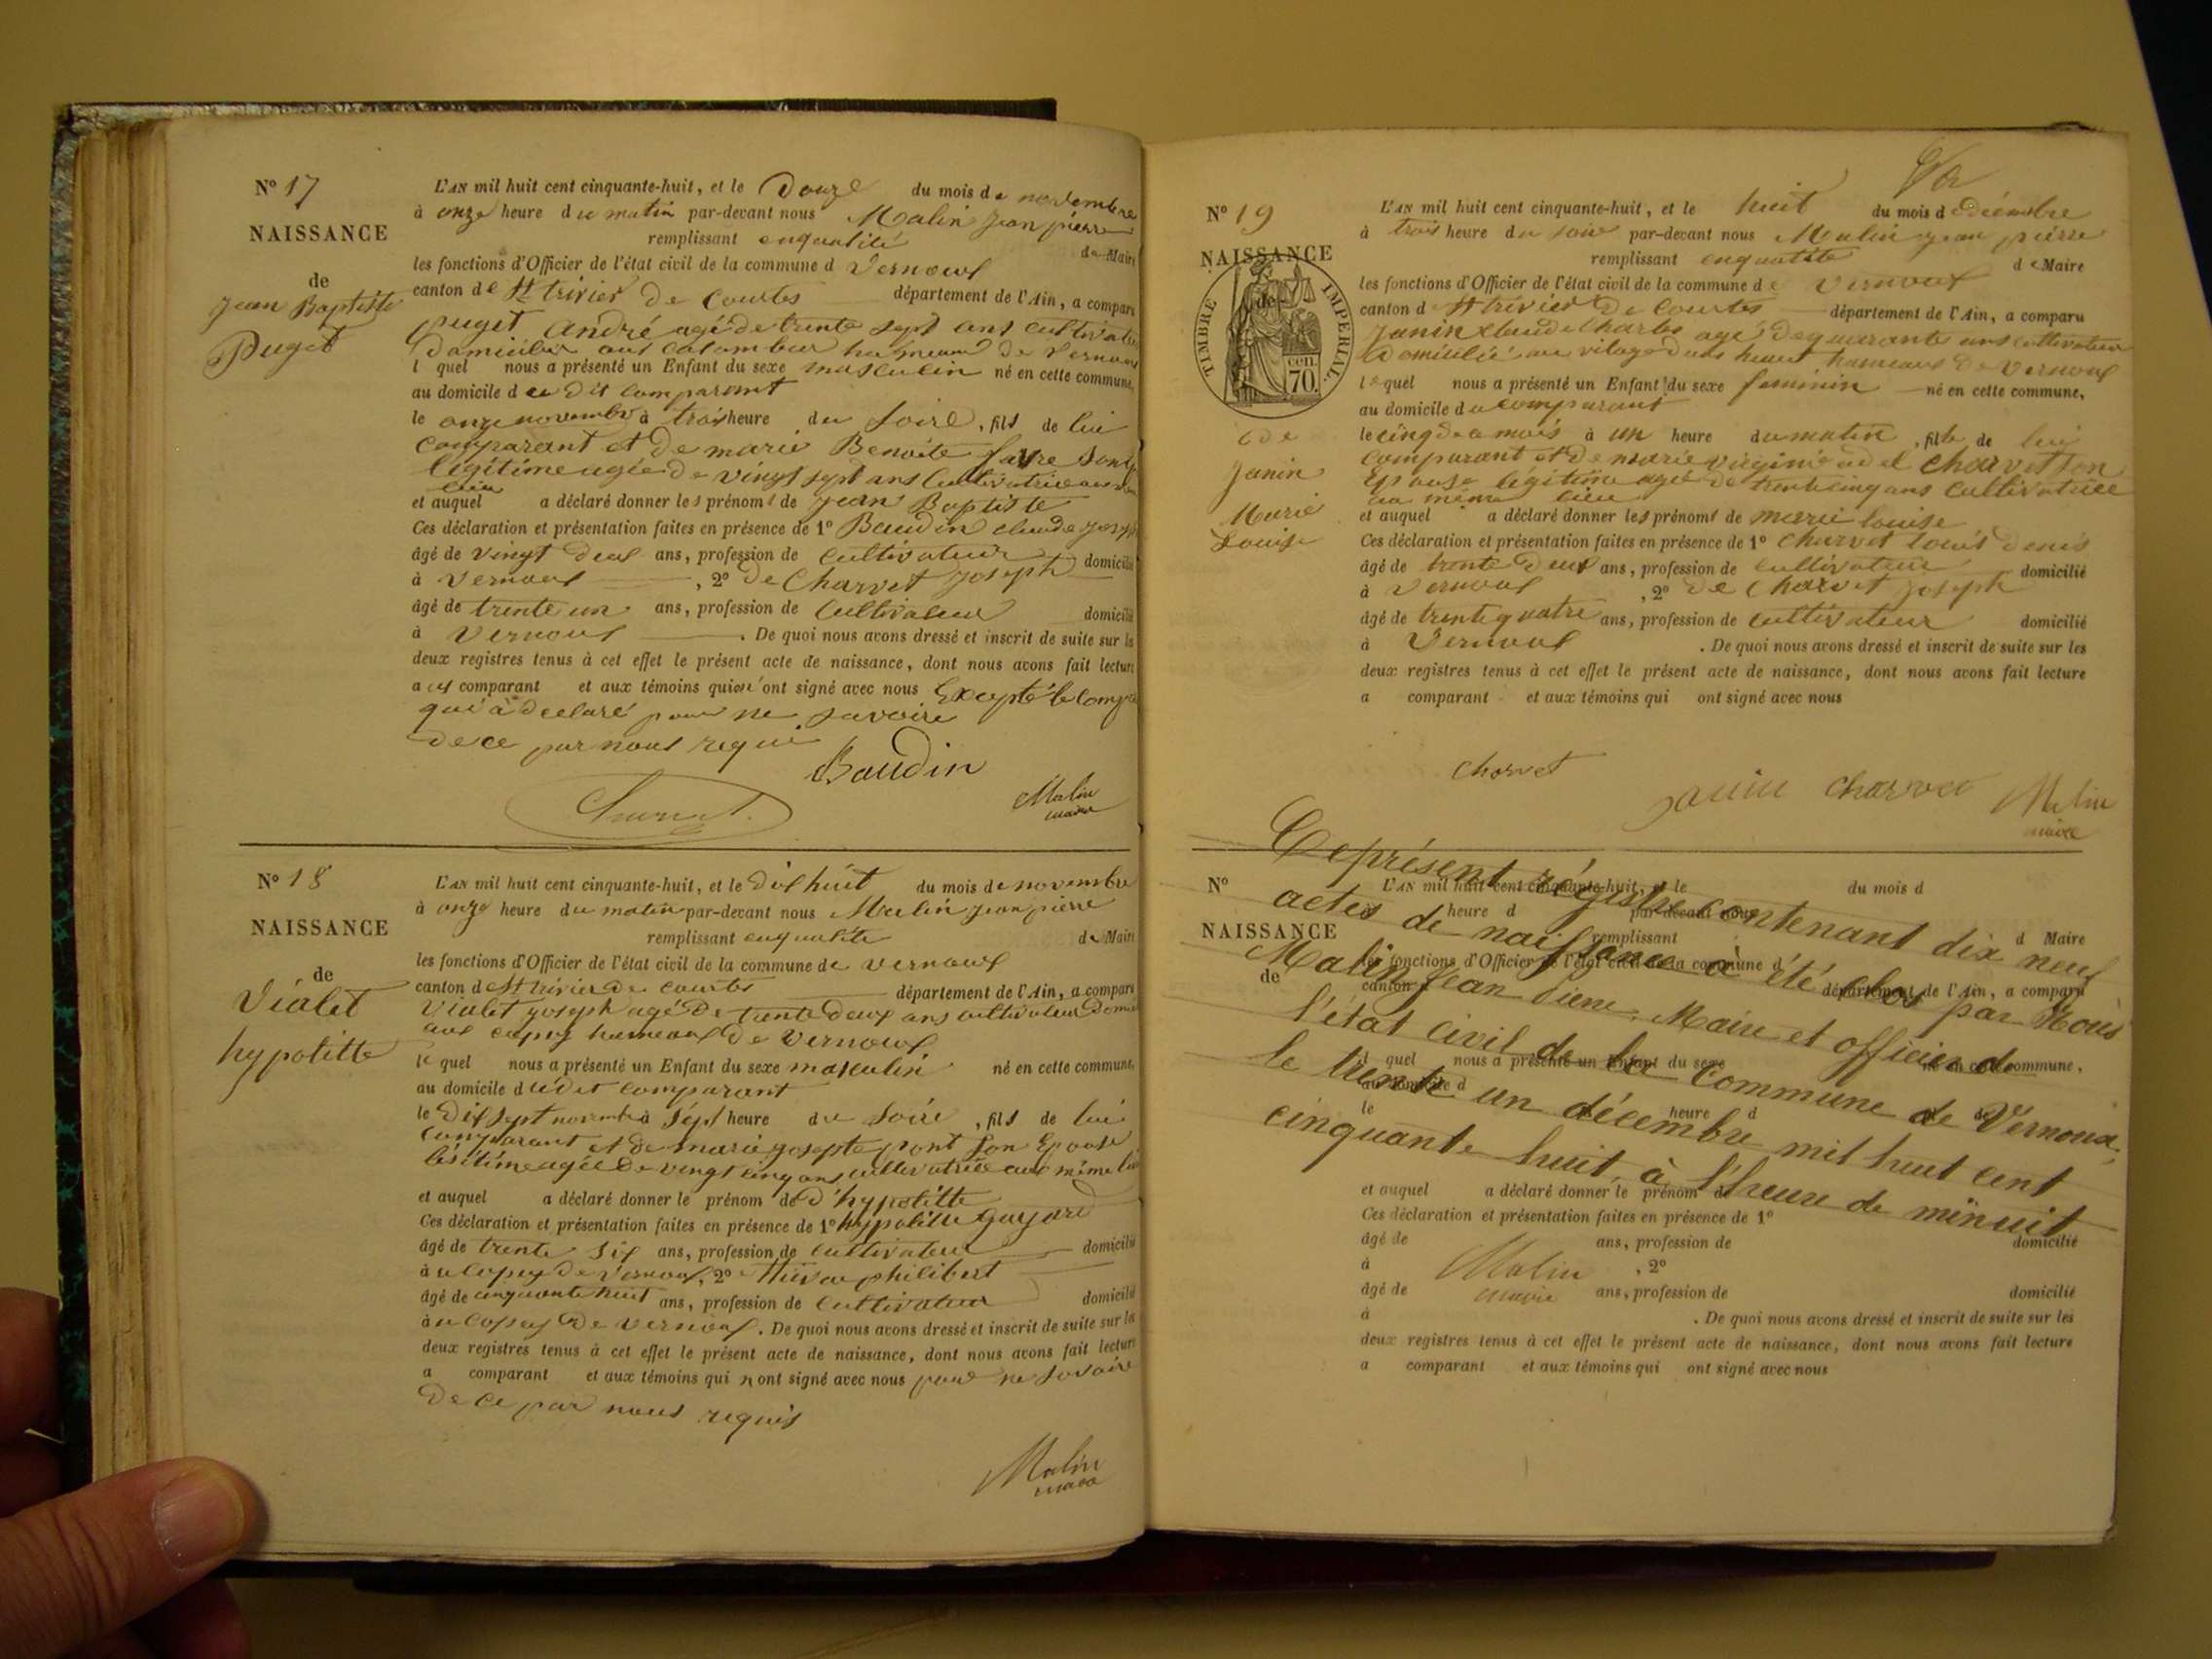 N° 17
NAISSANCE
de
Jean Baptiste
Puget
L'AN mil huit cent cinquante-huit, et le Douze du mois de novembre
à onze heure du matin par-devant nous Malin jean pierre
remplissant enqualité de Maire
les fonctions d'Officier de l'état civil de la commune d Vernoux
canton de St trivier De Courtes département de l'Ain, a comparu
puget André agé de trente sept ans cultivateur
Domicilié aux Colombier hameau de Vernoux
l quel nous a présenté un Enfant du sexe masculin né en cette commune,
au domicile d du Dit comparant
le onze novembre à trois heure du Soire, fils de lui
comparant et De marie Benoite favre
légitime agée De vingt sept ans Cultivatrice
lieu
et auquel a déclaré donner les prénoms de jean Baptiste
Ces déclaration et présentation faites en présence de 1° Baudin claude joseph
âgé de vingt Deux ans, profession de Cultivateur domicilié
à Vernoux , 2° De Charvet joseph
âgé de trente un ans, profession de Cultivateur domicilié
à Vernoux . De quoi nous avons dressé et inscrit de suite sur les
deux registres tenus à cet effet le présent acte de naissance, dont nous avons fait lecture
a comparant et aux témoins qui ont signé avec nous Excepté le
qui à declaré pour ne savoire
de ce par nous requi
Baudin
Malin
maire
N° 18
NAISSANCE
de
Vialet
hypolitte
L'AN mil huit cent cinquante-huit, et le Dix huit du mois de novembre
à onze heure du matin par-devant nous Malin jean pierre
remplissant enqualité de Maire
les fonctions d'Officier de l'état civil de la commune de Vernoux
canton d St trivier De courtes département de l'Ain, a comparu
Vialet joseph agé De trente Deux ans cultivateur
aux hameau De Vernoux
le quel nous a présenté un Enfant du sexe masculin né en cette commune,
au domicile dudit comparant
le Dix sept novembre à sept heure du Soire, fils de lui
comparant et de marie josepte pont son Epouse
légitime agée De vingt cinq ans cultivatrice aux même lieu
et auquel a déclaré donner le prénom de d'hypolitte
Ces déclaration et présentation faites en présence de 1° hyppolitte
âgé de trente six ans, profession de Cultivateur domicilié
à De Vernoux, 2° philibert
âgé de cinquante huit ans, profession de Cultivateur domicilié
à De Vernoux. De quoi nous avons dressé et inscrit de suite sur les
deux registres tenus à cet effet le présent acte de naissance, dont nous avons fait lecture
a comparant et aux témoins qui n ont signé avec nous pour ne savoire
De ce par nous requis
Malin
maire
N° 19
NAISSANCE
de
TIMBRE IMPÉRIAL.
cen.
70.
Janin
Marie
Louise
L'AN mil huit cent cinquante-huit, et le huit du mois d décembre
à trois heure du soir par-devant nous Malin jean pierre
remplissant enqualité de Maire
les fonctions d'Officier de l'état civil de la commune de Vernoux
canton d St trivier De Courtes département de l'Ain, a comparu
Janin Claude Charles agé De quarante ans cultivateur
Domicilié au vilage hameau De Vernoux
lequel nous a présenté un Enfant du sexe feminin né en cette commune,
au domicile du comparant
le cinq de a mois à un heure du matin, fille de lui
comparant et De marie virginie Charvet son
Epouse légitime agée De trente cinq ans cultivatrice
au même lieu
et auquel a déclaré donner les prénoms de marie louise
Ces déclaration et présentation faites en présence de 1° Charvet louis Denis
âgé de trente Deux ans, profession de Cultivateur domicilié
à Vernoux , 2° De Charvet joseph
âgé de trente quatre ans, profession de Cultivateur domicilié
à Vernoux . De quoi nous avons dressé et inscrit de suite sur les
deux registres tenus à cet effet le présent acte de naissance, dont nous avons fait lecture
a comparant et aux témoins qui ont signé avec nous
Charvet
Janin Charvet Malin
maire
Ce présent régistre contenant dix neuf
actes de naissance a été clos par Nous
Malin Jean Pierre, Maire et officier de
l'état civil de la commune de Vernoux,
le trente un décembre mil huit cent
cinquante huit, à l'heure de minuit
Malin
maire
N°
NAISSANCE
de
L'AN mil huit cent cinquante-huit, et le du mois d
à heure d par-devant nous
remplissant d Maire
les fonctions d'Officier de l'état civil de la commune d
canton d département de l'Ain, a comparu
l quel nous a présenté un Enfant du sexe né en cette commune,
au domicile d
le heure d de
et auquel a déclaré donner le prénom de
Ces déclaration et présentation faites en présence de 1°
âgé de ans, profession de domicilié
à , 2°
âgé de ans, profession de domicilié
à . De quoi nous avons dressé et inscrit de suite sur les
deux registres tenus à cet effet le présent acte de naissance, dont nous avons fait lecture
a comparant et aux témoins qui ont signé avec nous